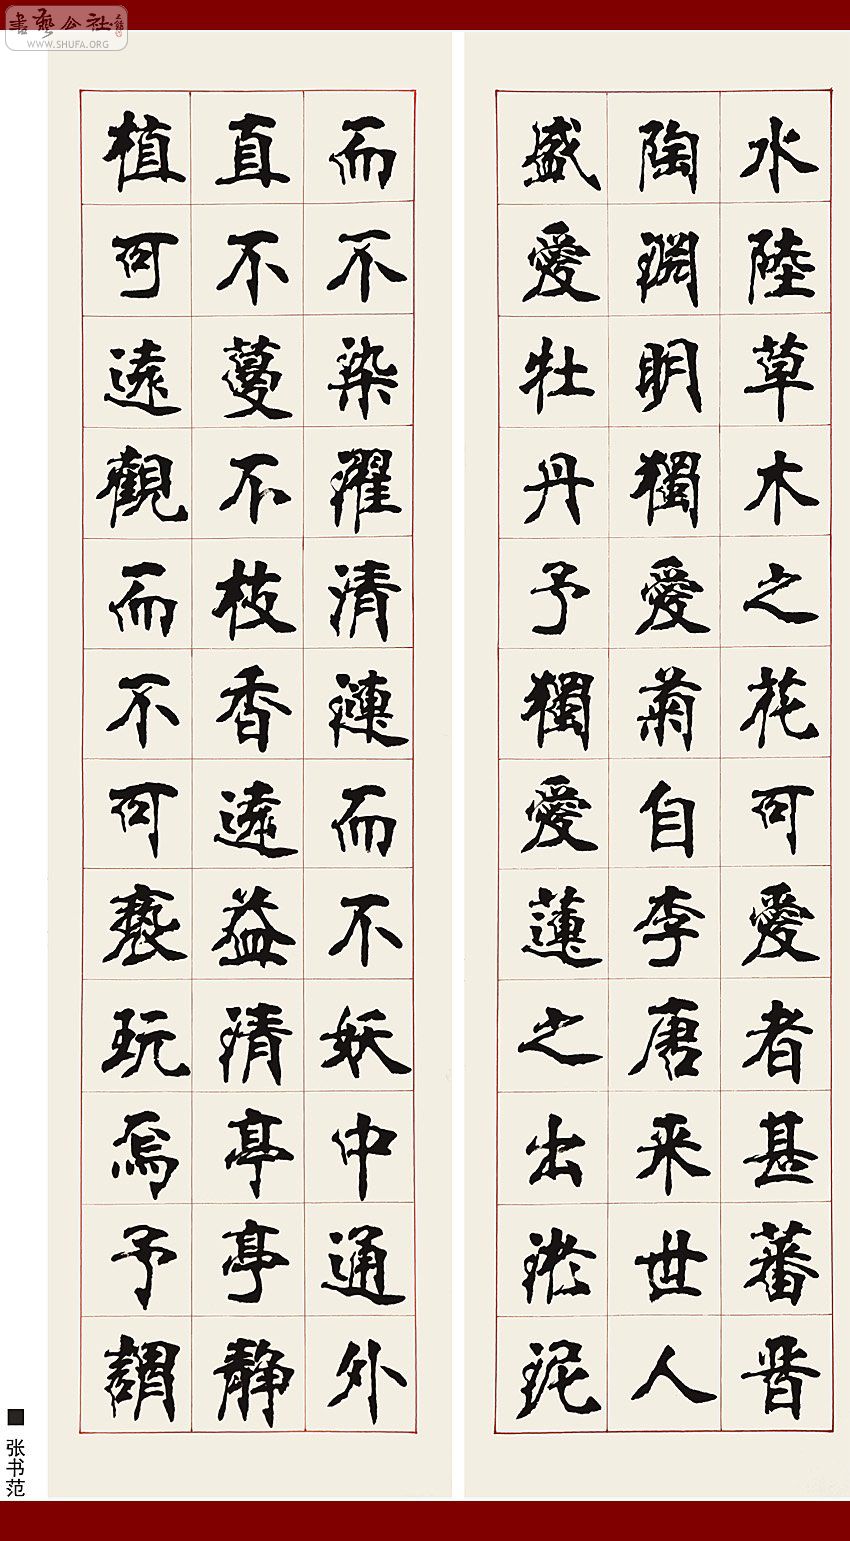 書藝公社
WWW.SHUFA.ORG
水陸草木之花可愛者甚蕃晋
陶淵明獨愛菊自李唐来世人
盛愛牡丹予獨愛蓮之出淤泥
而不染濯清漣而不妖中通外
直不蔓不枝香遠益清亭亭静
植可遠觀而不可褻玩焉予謂
■张书范